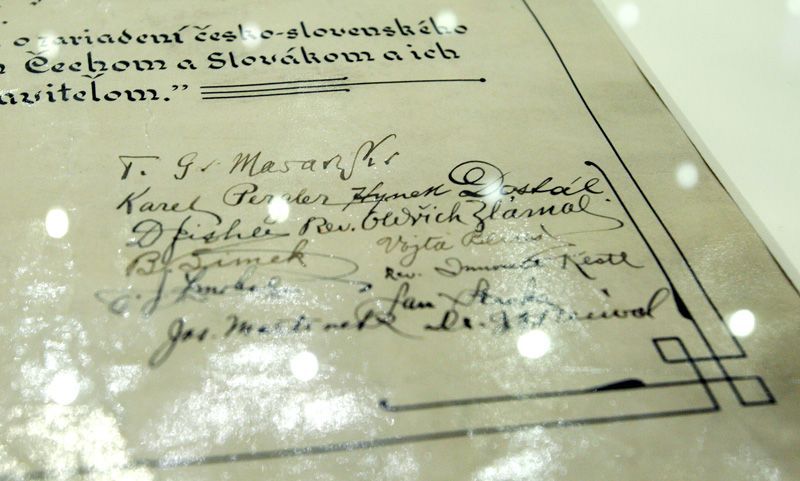 o zariadení česko-slovenského
Čechom a Slovákom a ich
aviteľom.”
T. G. Masaryk
Karel Pergler Hynek Dostál
J Fisher Rev. Oldřich Zlámal
B. Šimek Vojta Beneš
Rev. Innocent Kestl
Jan
Jos. Martinek Dr.